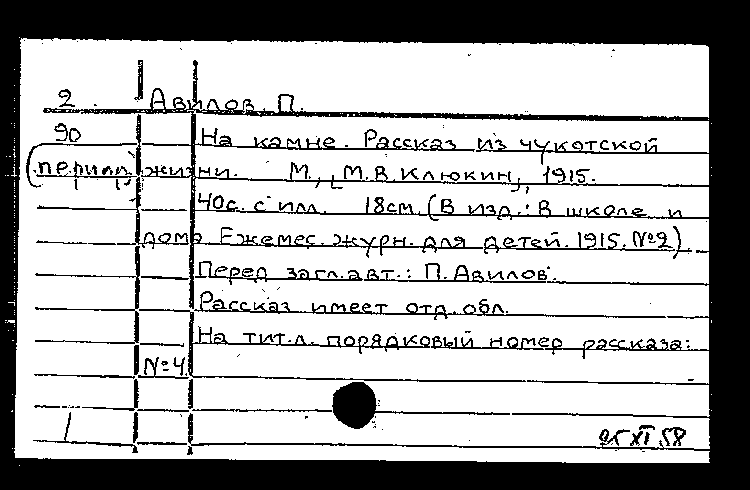 2. Авилов, П.
90 На камне. Рассказ из чукотской
(период) жизни. М., [М.В. Клюкин], 1915.
40с. с илл. 18см. (В изд.: В школе и
дома. Ежемес. журн. для детей. 1915. №2).
Перед загл. авт.: П. Авилов.
Рассказ имеет отд. обл.
На тит. л. порядковый номер рассказа:
№4.
25 XI 58